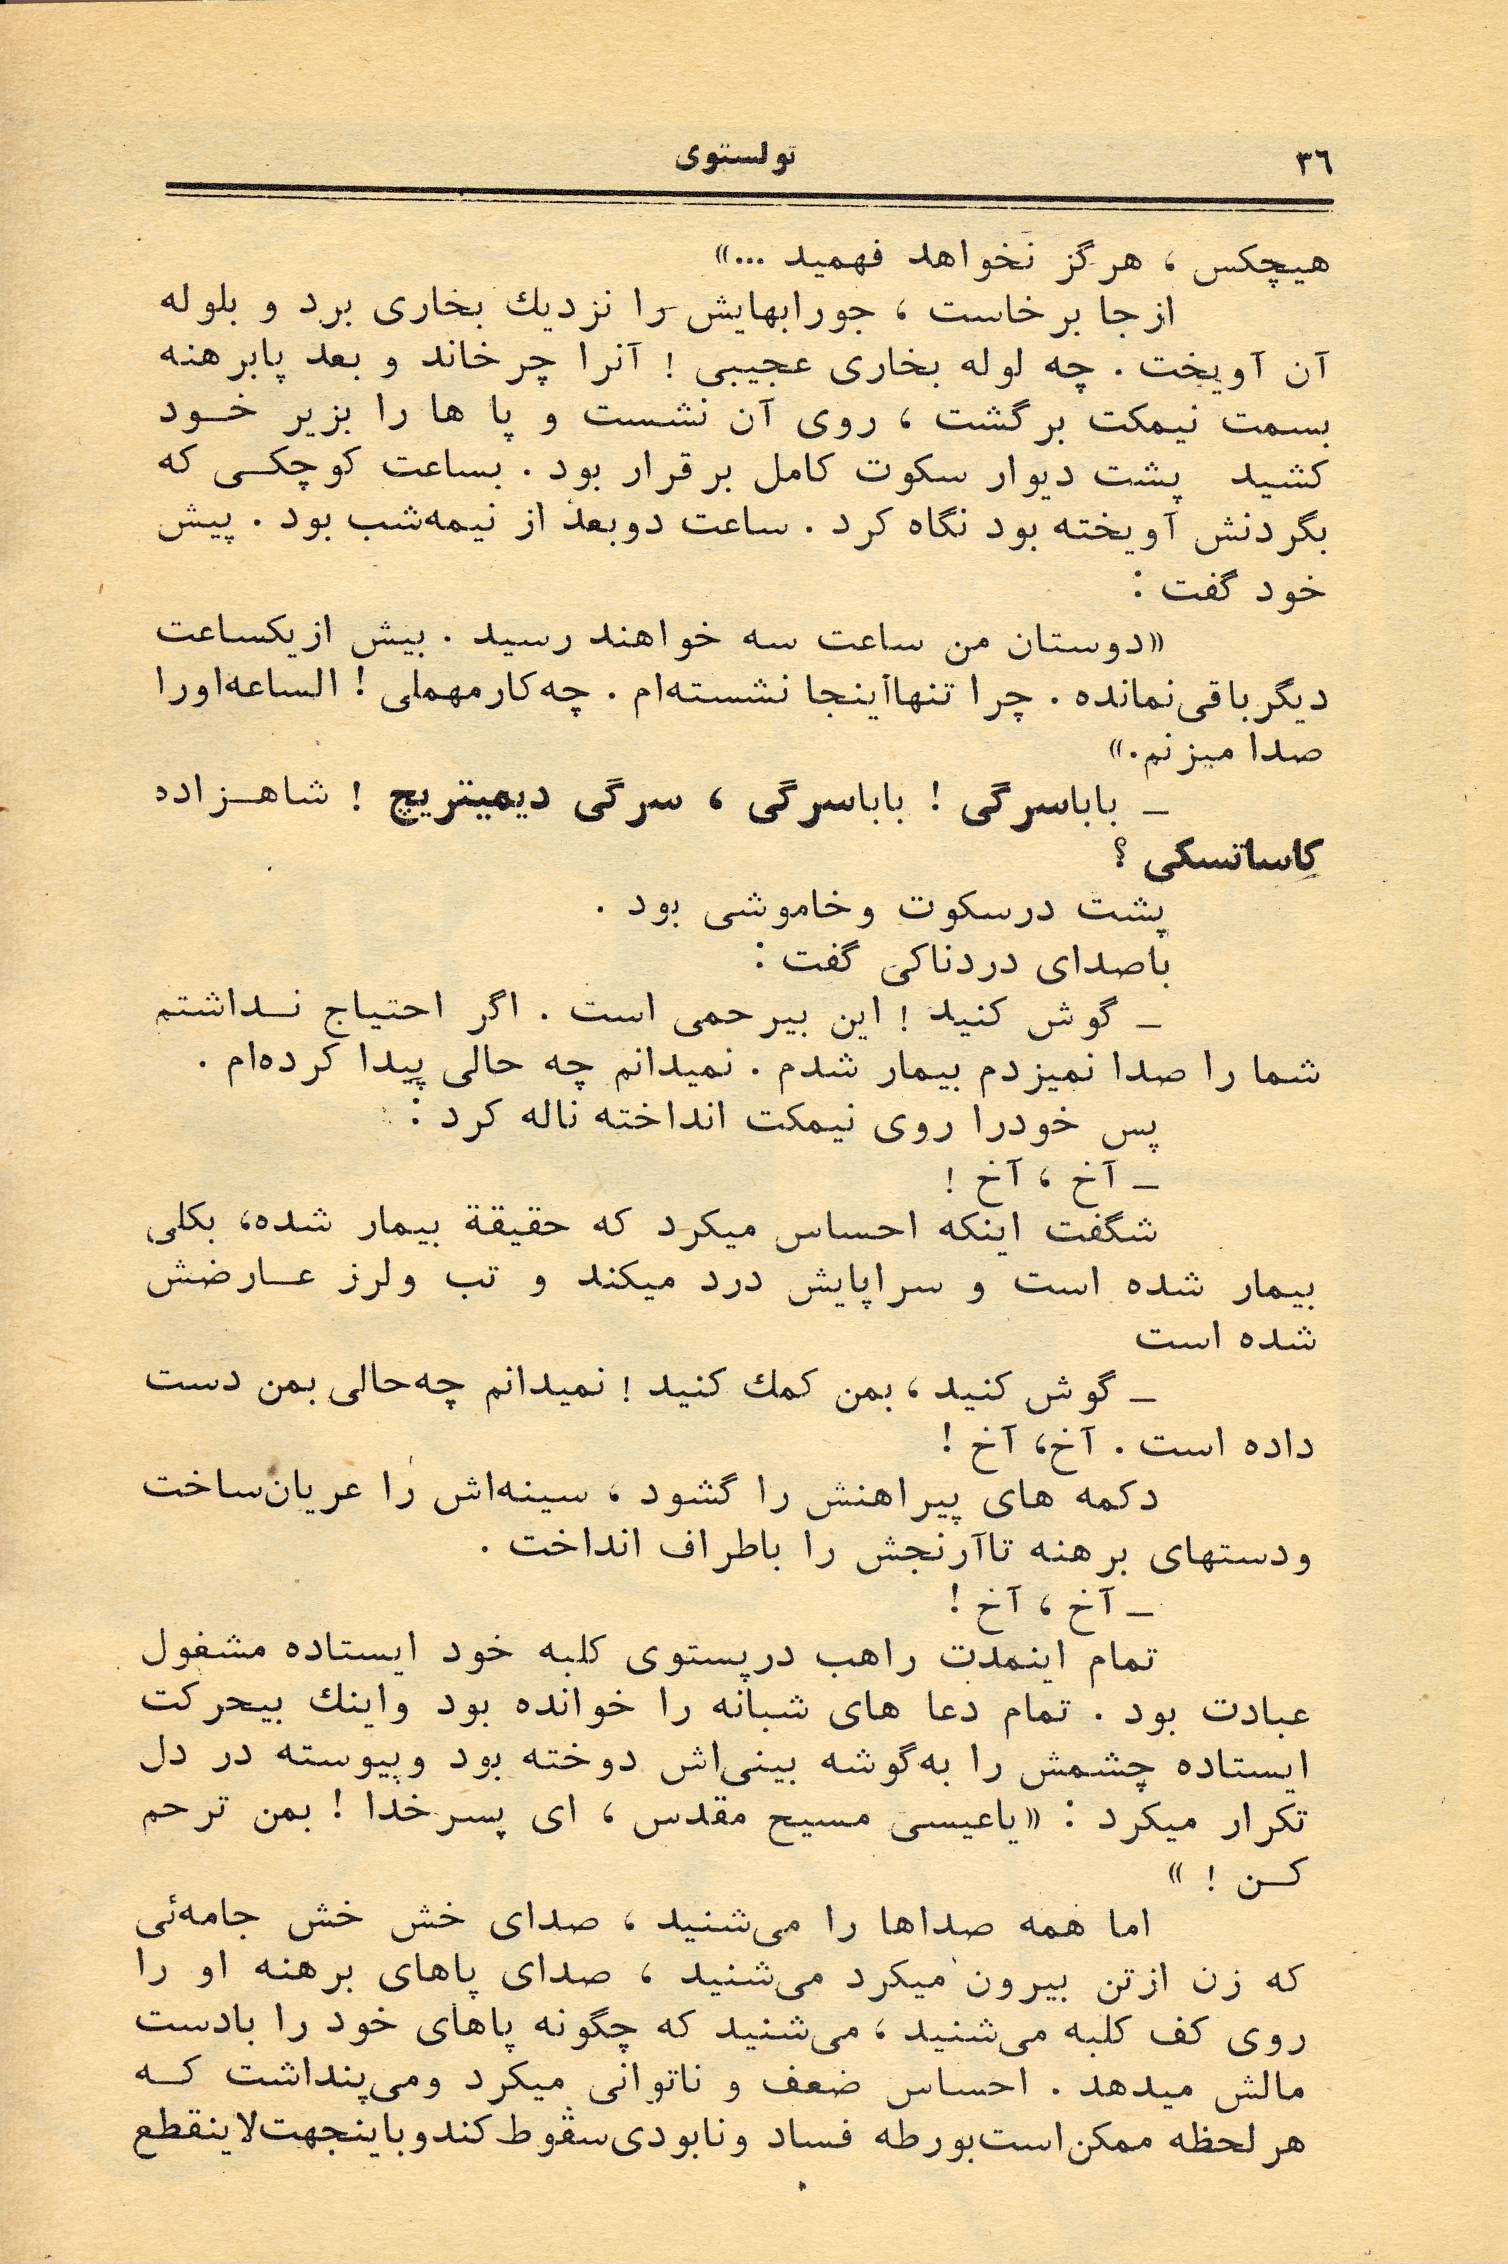 ۳٦
تولستوی
هیچکس ، هرگز نخواهد فهمید ...»
ازجا برخاست ، جورابهایش را نزدیك بخاری برد و بلوله
آن آویخت . چه لوله بخاری عجیبی ! آنرا چرخاند و بعد پابرهنه
بسمت نیمکت برگشت ، روی آن نشست و پا ها را بزیر خـود
کشید پشت دیوار سکوت کامل برقرار بود . بساعت کوچکـی که
بگردنش آویخته بود نگاه کرد . ساعت دوبعد از نیمه‌شب بود . پیش
خود گفت :
«دوستان من ساعت سه خواهند رسید . بیش ازیکساعت
دیگرباقی‌نمانده . چرا تنهااینجا نشسته‌ام . چه‌کارمهملی ! الساعه‌اورا
صدا میزنم.»
ـ باباسرگی ! باباسرگی ، سرگی دیمیتریچ ! شاهـزاده
کاساتسکی ؟
پشت درسکوت وخاموشی بود .
باصدای دردناکی گفت :
ـ گوش کنید ! این بیرحمی است . اگر احتیاج نـداشتم
شما را صدا نمیزدم بیمار شدم . نمیدانم چه حالی پیدا کرده‌ام .
پس خودرا روی نیمکت انداخته ناله کرد :
ـ آخ ، آخ !
شگفت اینکه احساس میکرد که حقیقة بیمار شده، بکلی
بیمار شده است و سراپایش درد میکند و تب ولرز عـارضش
شده است
ـ گوش کنید ، بمن کمك کنید ! نمیدانم چه‌حالی بمن دست
داده است . آخ، آخ !
دکمه های پیراهنش را گشود ، سینه‌اش را عریان‌ساخت
ودستهای برهنه تاآرنجش را باطراف انداخت .
ـ آخ ، آخ !
تمام اینمدت راهب درپستوی کلبه خود ایستاده مشغول
عبادت بود . تمام دعا های شبانه را خوانده بود واینك بیحرکت
ایستاده چشمش را به‌گوشه بینی‌اش دوخته بود وپیوسته در دل
تکرار میکرد : «یاعیسی مسیح مقدس ، ای پسرخدا ! بمن ترحم
کـن ! »
اما همه صداها را می‌شنید ، صدای خش خش جامه‌ئی
که زن ازتن بیرون میکرد می‌شنید ، صدای پاهای برهنه او را
روی کف کلبه می‌شنید ، می‌شنید که چگونه پاهای خود را بادست
مالش میدهد . احساس ضعف و ناتوانی میکرد ومی‌پنداشت کـه
هرلحظه ممکن‌است‌بورطه فساد ونابودی‌سقوط‌کندوباینجهت‌لاینقطع